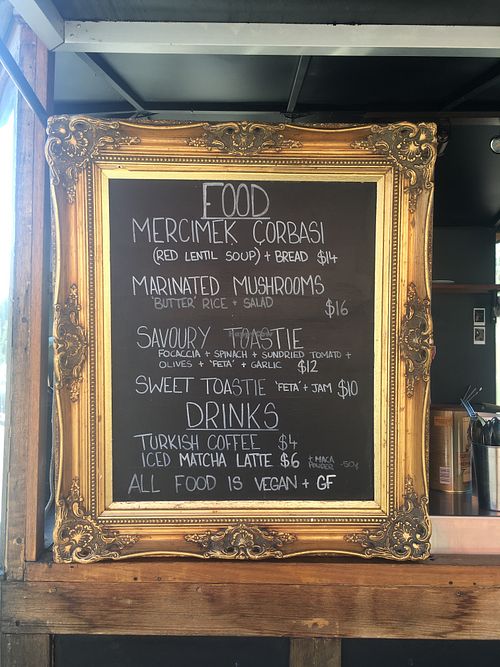 FOOD
MERCIMEK ÇORBASI
(RED LENTIL SOUP) + BREAD $14
MARINATED MUSHROOMS
'BUTTER' RICE + SALAD
$16
SAVOURY TOASTIE
FOCACCIA + SPINACH + SUNDRIED TOMATO +
OLIVES + 'FETA' + GARLIC $12
SWEET TOASTIE 'FETA' + JAM $10
DRINKS
TURKISH COFFEE $4
ICED MATCHA LATTE $6 + MACA
POWDER -50¢
ALL FOOD IS VEGAN + GF